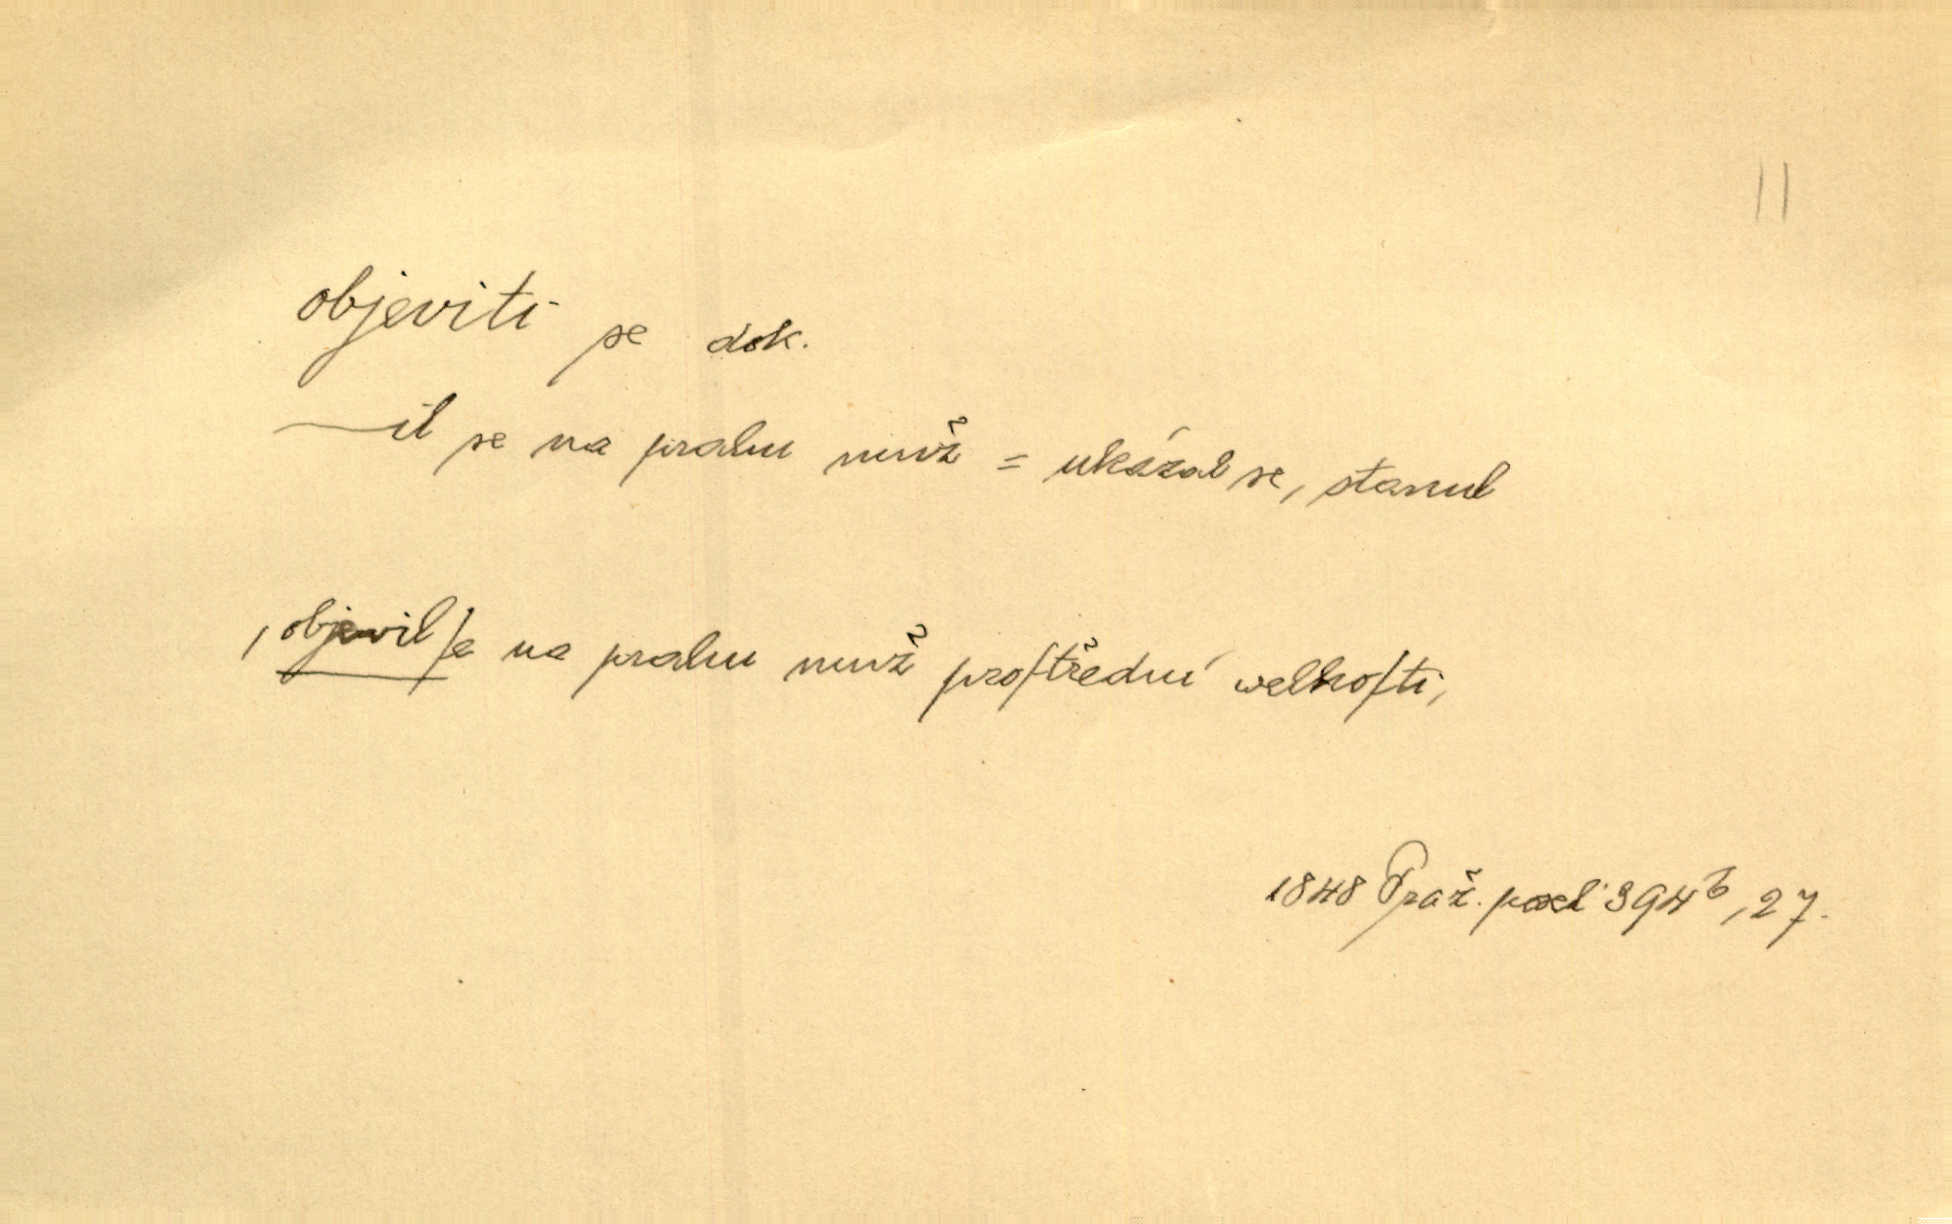 11
objeviti se dok.
—il se na prahu muž = ukázal se, stanul
, objewil ſe na prahu muž proſtřední welkoſti,
1848 Praž. posel 394b, 27.